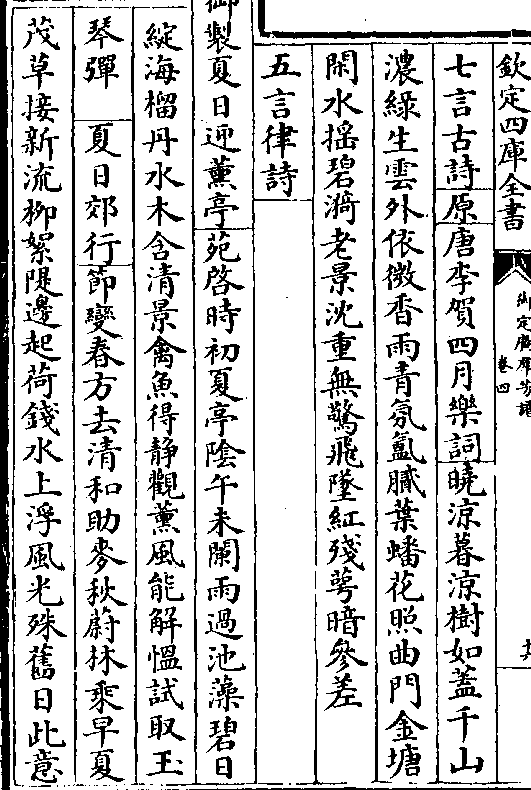 欽定四庫全書
御定廣羣芳譜
卷四
七言古詩原唐李賀四月樂詞曉涼暮涼樹如蓋千山
濃綠生雲外依微香雨青氛氳膩葉蟠花照曲門金塘
閑水揺碧漪老景沈重無驚飛墜紅殘萼暗參差
五言律詩
御製夏日迎薰亭苑啓時初夏亭陰午未闌雨過池藻碧日
綻海榴丹水木含清景禽魚得静觀薰風能解慍試取玉
琴彈 夏日郊行節變春方去清和助麥秋蔚林乘早夏
茂草接新流柳絮隄邊起荷錢水上浮風光殊舊日此意